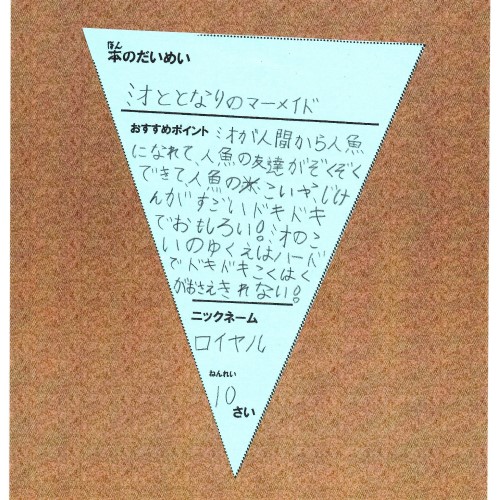 ほん
本のだいめい
ミオととなりのマーメイド
おすすめポイント ミオが人間から人魚
になれて、人魚の友達がぞくぞく
できて、人魚の こいや、じけ
んがすごいドキドキ
でおもしろい!ミオのこ
いのゆくえはハード
でドキドキこくはく
がおさえきれない!
ニックネーム
ロイヤル
ねんれい
10さい